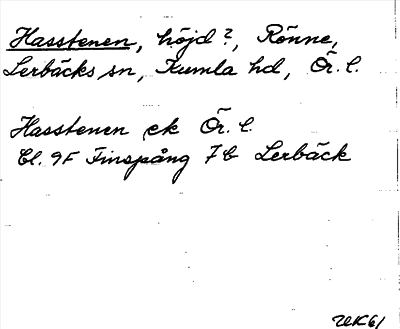 Hasstenen, höjd?, Rönne,
Lerbäcks sn, Kumla hd, Ör. l.
Hasstenen ek Ör. l.
Bl. 9F Finspång 7b Lerbäck
UK61